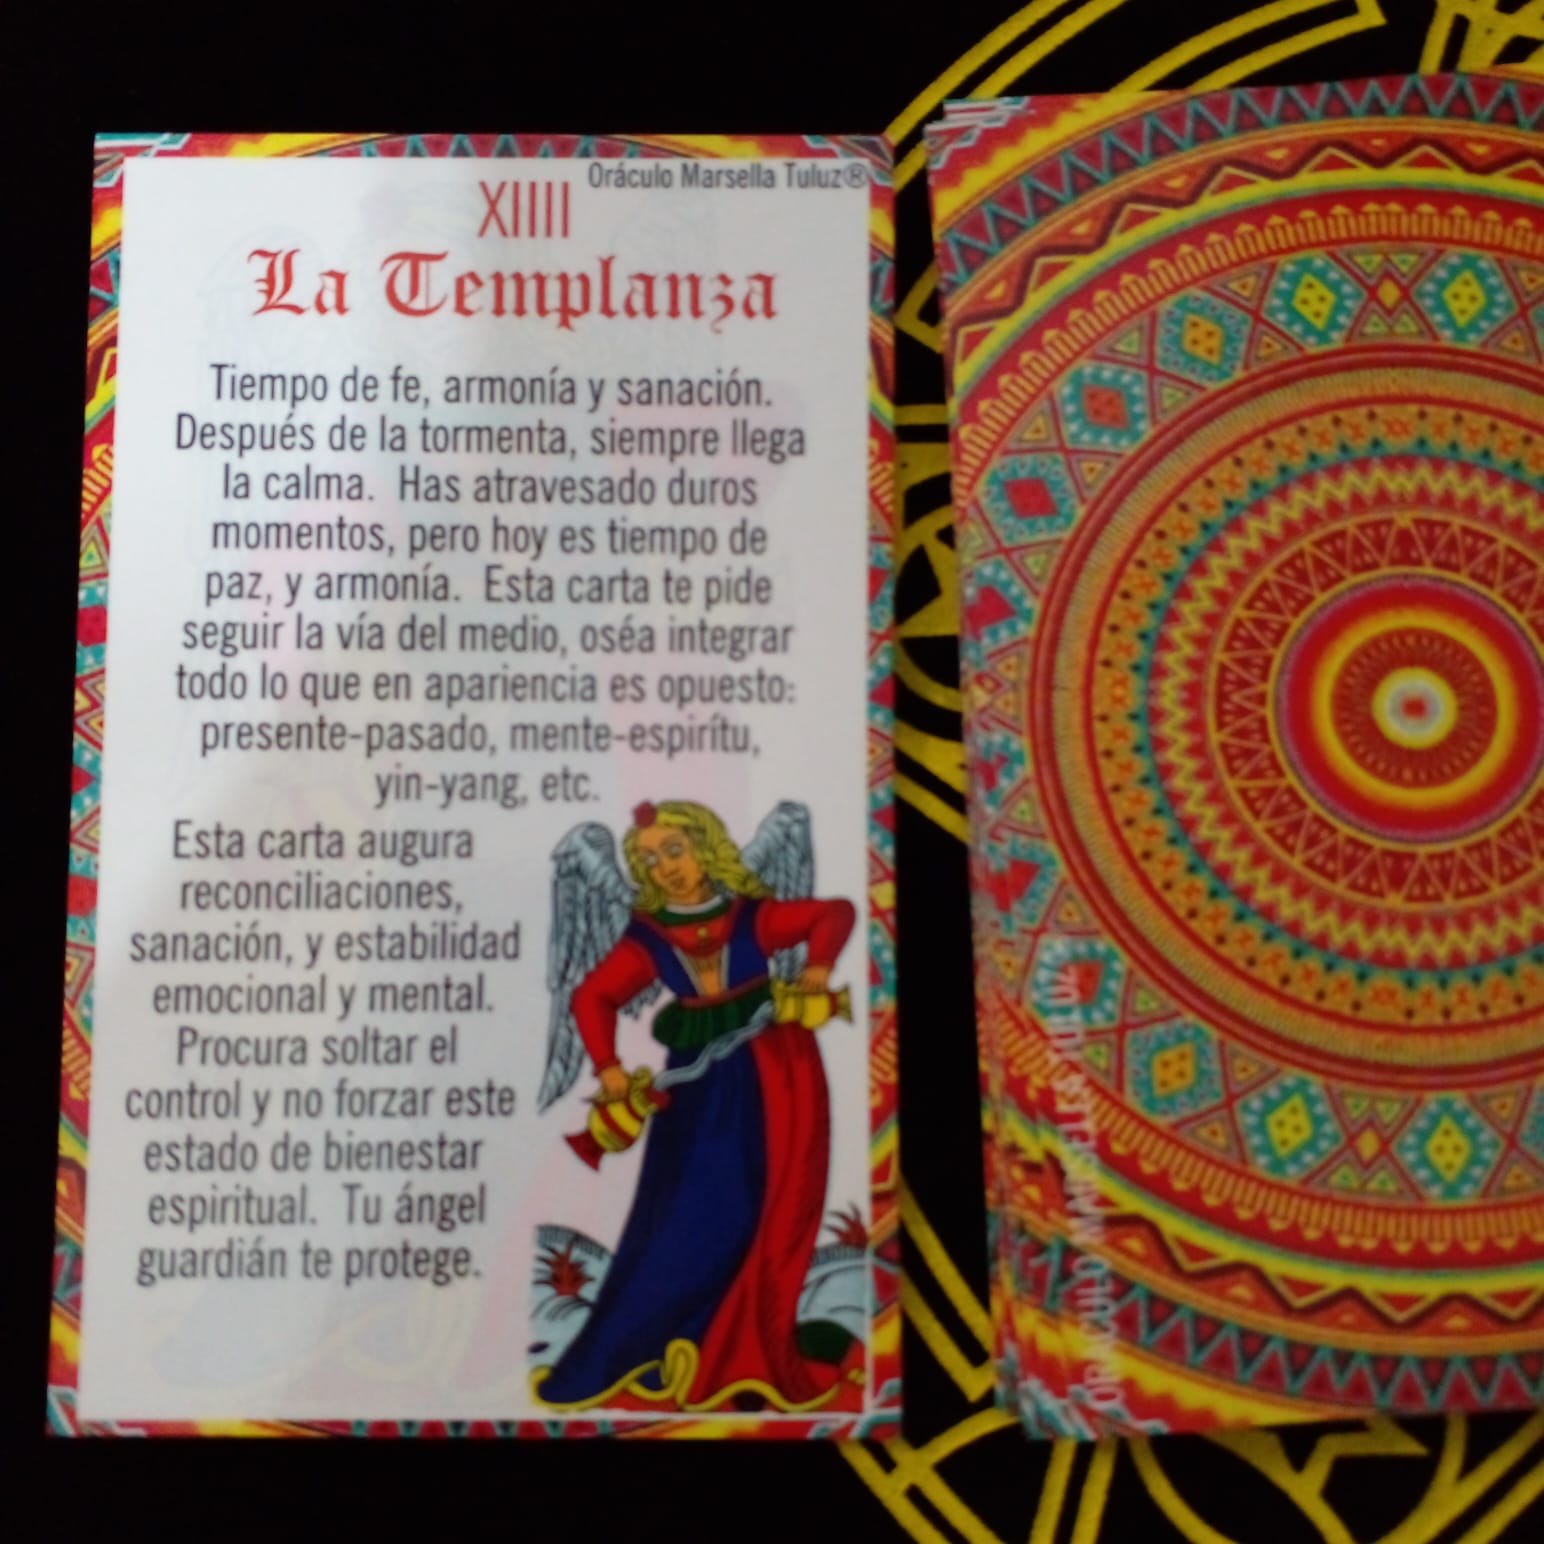 Oráculo Marsella Tuluz®
XIIII
La Templanza
Tiempo de fe, armonía y sanación.
Después de la tormenta, siempre llega
la calma. Has atravesado duros
momentos, pero hoy es tiempo de
paz, y armonía. Esta carta te pide
seguir la vía del medio, oséa integrar
todo lo que en apariencia es opuesto:
presente-pasado, mente-espirítu,
yin-yang, etc.
Esta carta augura
reconciliaciones,
sanación, y estabilidad
emocional y mental.
Procura soltar el
control y no forzar este
estado de bienestar
espiritual. Tu ángel
guardián te protege.